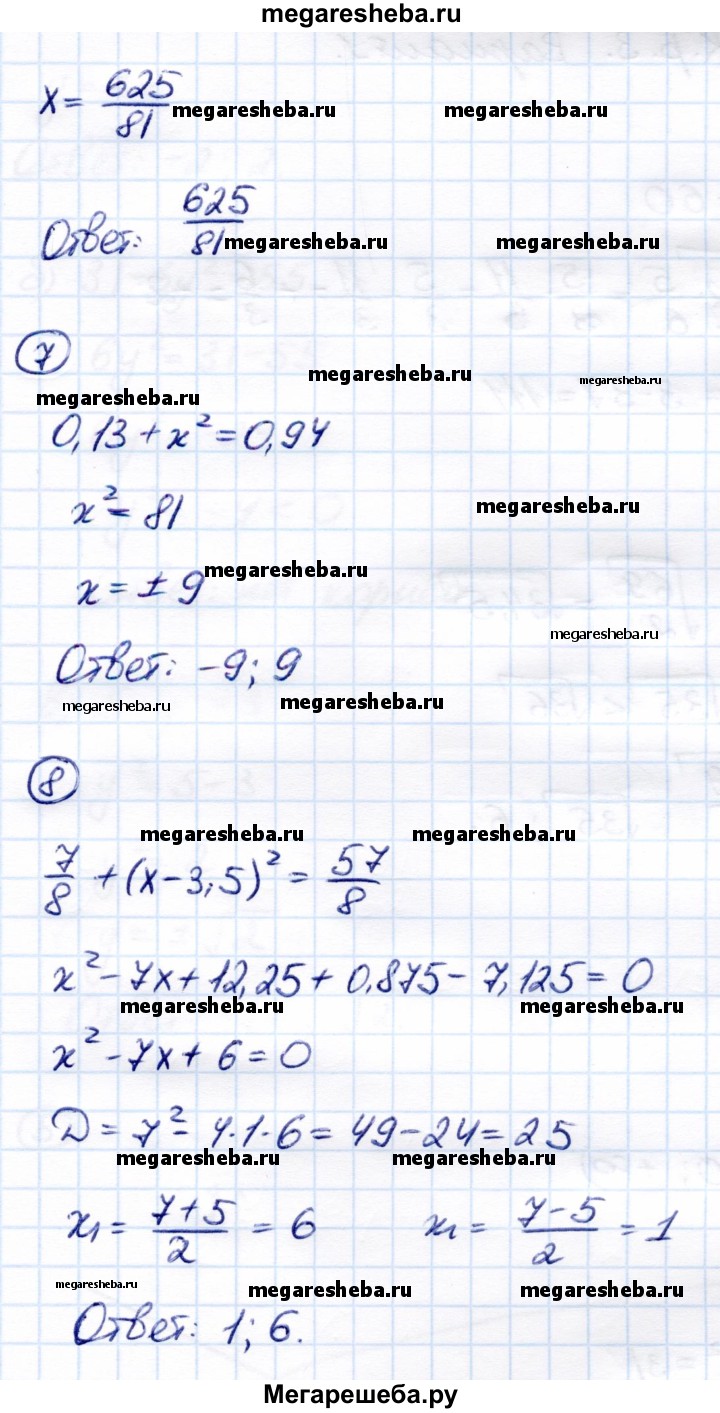 megaresheba.ru
x = 625/81
megaresheba.ru megaresheba.ru
Ответ: 625/81
megaresheba.ru megaresheba.ru
7
megaresheba.ru megaresheba.ru
megaresheba.ru
0,13 + x² = 0,94
x² = 81
megaresheba.ru
x = ± 9
megaresheba.ru
megaresheba.ru
Ответ: -9; 9
megaresheba.ru megaresheba.ru
8
megaresheba.ru megaresheba.ru
7/8 + (x - 3,5)² = 57/8
x² - 7x + 12,25 + 0,875 - 7,125 = 0
megaresheba.ru megaresheba.ru
x² - 7x + 6 = 0
D = 7² - 4·1·6 = 49 - 24 = 25
megaresheba.ru megaresheba.ru
x₁ = (7+5)/2 = 6 x₁ = (7-5)/2 = 1
megaresheba.ru megaresheba.ru megaresheba.ru
Ответ: 1; 6.
Мегарешеба.ру